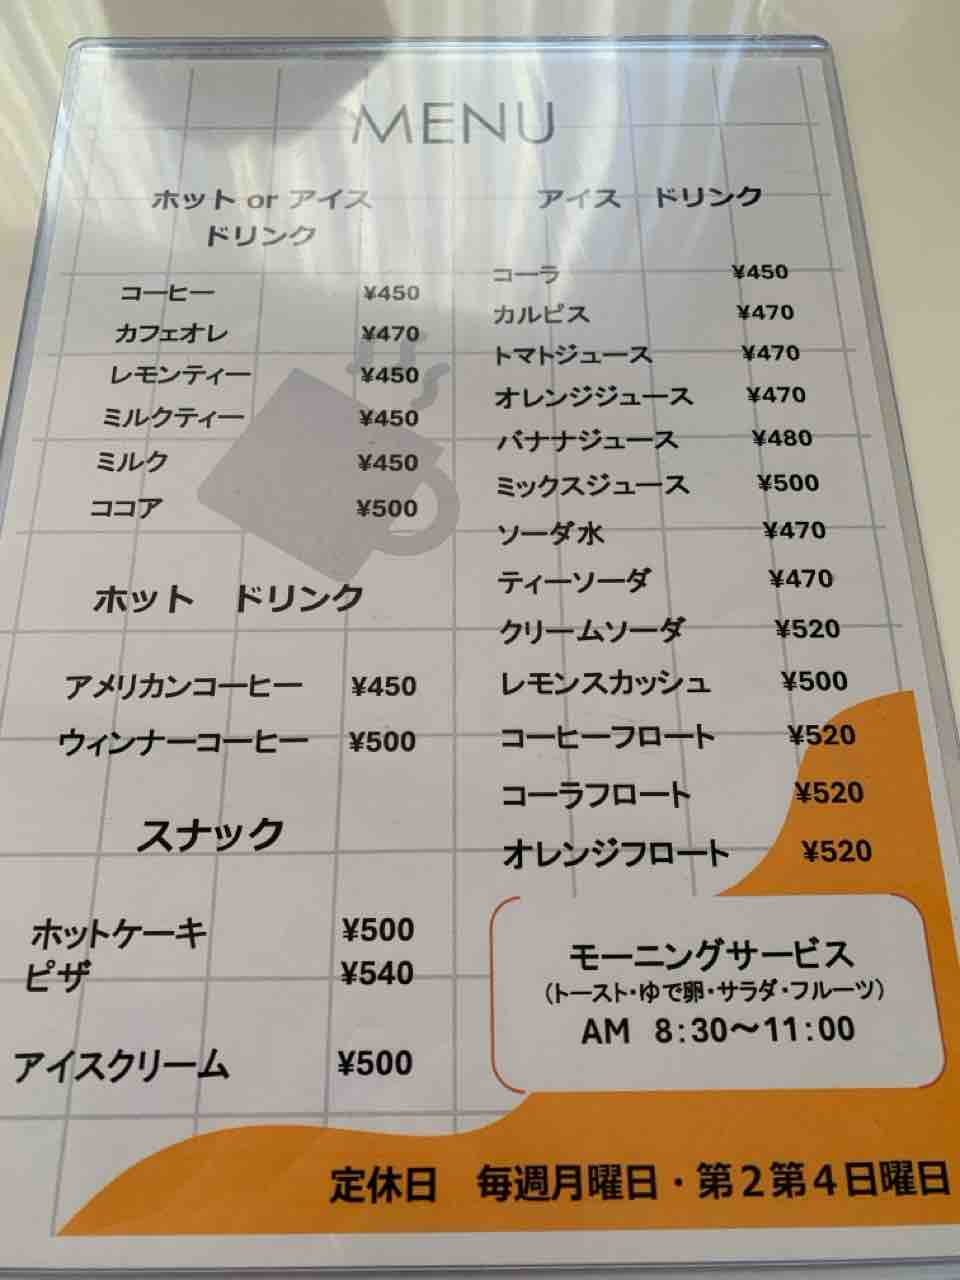 MENU
ホット or アイス
ドリンク
コーヒー ¥450
カフェオレ ¥470
レモンティー ¥450
ミルクティー ¥450
ミルク ¥450
ココア ¥500
ホット ドリンク
アメリカンコーヒー ¥450
ウィンナーコーヒー ¥500
スナック
ホットケーキ ¥500
ピザ ¥540
アイスクリーム ¥500
アイス ドリンク
コーラ ¥450
カルピス ¥470
トマトジュース ¥470
オレンジジュース ¥470
バナナジュース ¥480
ミックスジュース ¥500
ソーダ水 ¥470
ティーソーダ ¥470
クリームソーダ ¥520
レモンスカッシュ ¥500
コーヒーフロート ¥520
コーラフロート ¥520
オレンジフロート ¥520
モーニングサービス
（トースト・ゆで卵・サラダ・フルーツ）
AM 8:30～11:00
定休日 毎週月曜日・第２第４日曜日